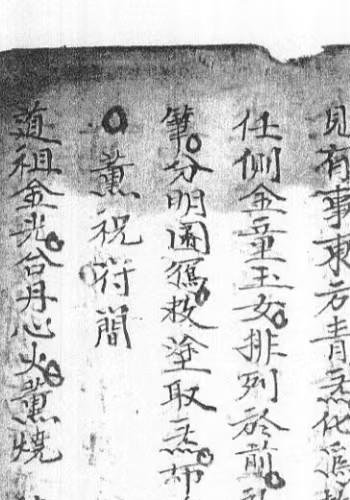 見有事東方青炁化為
任側金童玉女排列於前
筆分明圖寫救塗取炁
薰祝符簡
道祖金光合丹心火薰燒